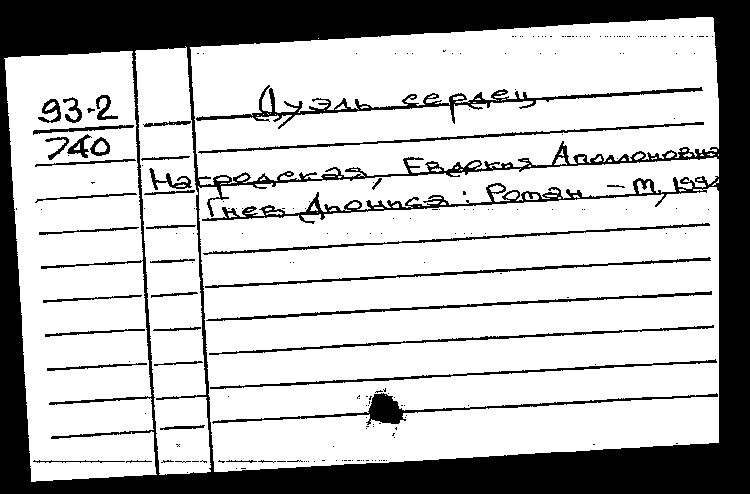 93-2
740
Дуэль сердец.
Нагродская, Евдокия Аполлоновна
Гнев Диониса: Роман. – М, 199